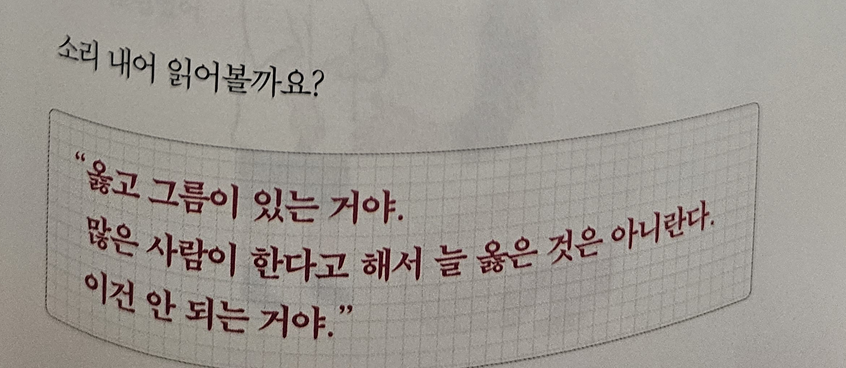 소리 내어 읽어볼까요?
“옳고 그름이 있는 거야.
많은 사람이 한다고 해서 늘 옳은 것은 아니란다.
이건 안 되는 거야.”